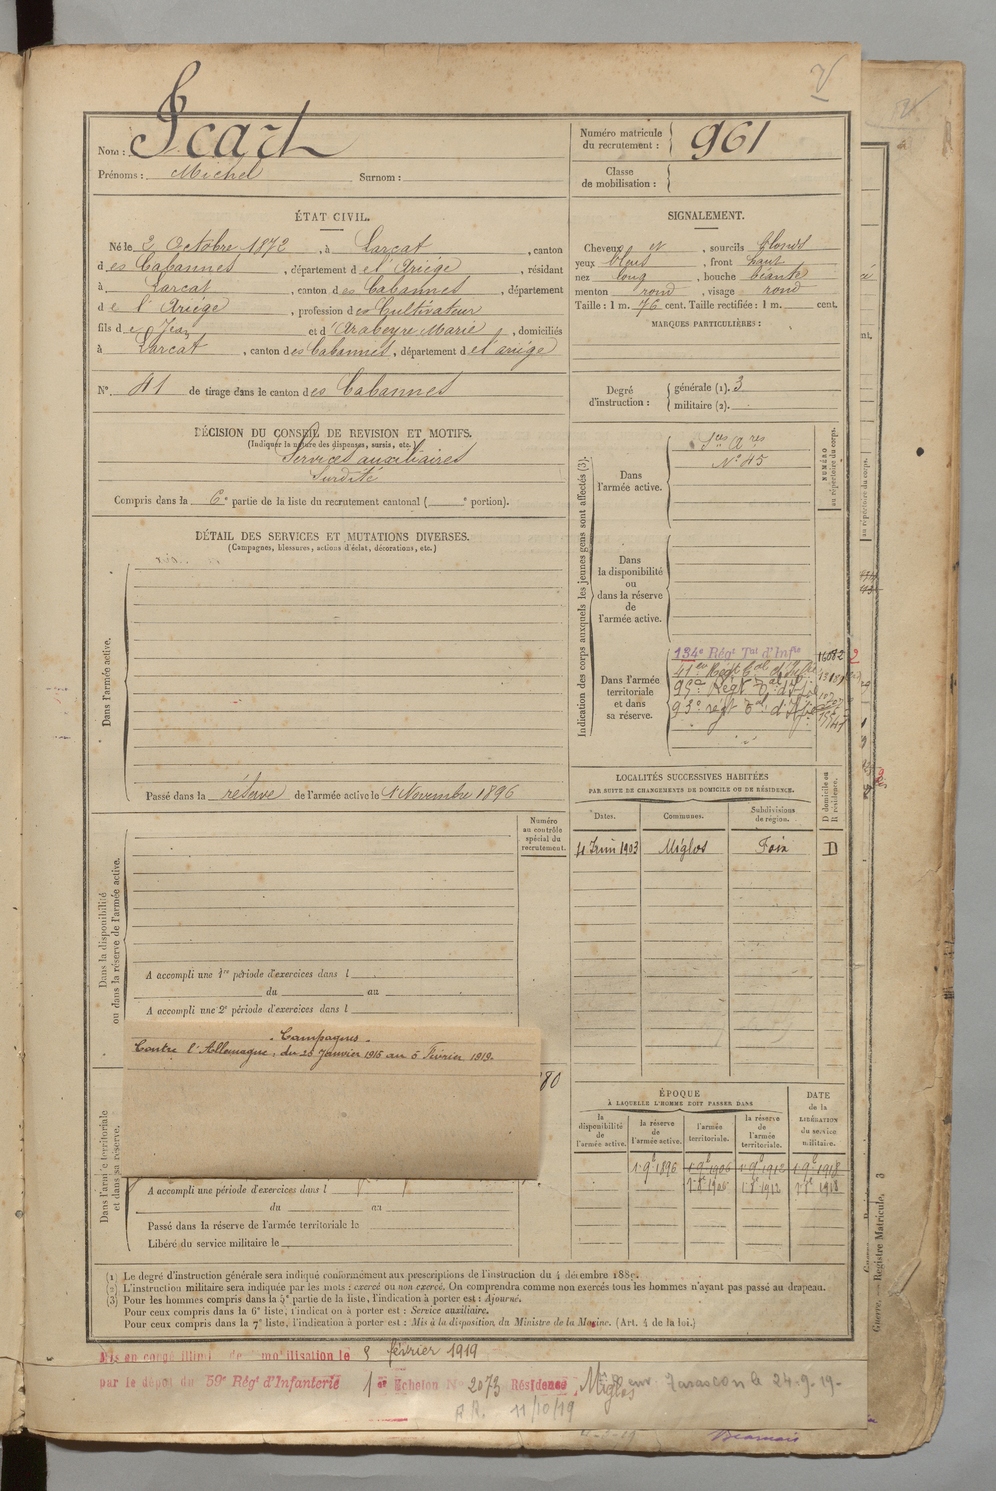 Nom : Icart
Prénoms : Michel Surnom :
Numéro matricule du recrutement : 961
Classe de mobilisation :
ÉTAT CIVIL.
Né le 2 Octobre 1872, à Larcat, canton
des Cabannes, département de l'Ariége, résidant
à Larcat, canton des Cabannes, département
de l'Ariége, profession de Cultivateur
fils de Jean et d'Arabeyre Marie, domiciliés
à Larcat, canton des Cabannes, département de l'ariége
N° 41 de tirage dans le canton des Cabannes
SIGNALEMENT.
Cheveux et, sourcils blonds
yeux bleus, front haut
nez long, bouche béante
menton rond, visage rond
Taille : 1 m. 76 cent. Taille rectifiée : 1 m. cent.
MARQUES PARTICULIÈRES :
Degré d'instruction : générale (1). 3
militaire (2).
DÉCISION DU CONSEIL DE REVISION ET MOTIFS.
(Indiquer la nature des dispenses, sursis, etc.)
Services auxiliaires
Surdité
Compris dans la 6e partie de la liste du recrutement cantonal ( e portion).
DÉTAIL DES SERVICES ET MUTATIONS DIVERSES.
(Campagnes, blessures, actions d'éclat, décorations, etc.)
Dans l'armée active.
Passé dans la réserve de l'armée active le 1 Novembre 1896
Indication des corps auxquels les jeunes gens sont affectés (3).
NUMÉRO au répertoire du corps.
Dans l'armée active.
Sces Ares
N° 45
Dans la disponibilité ou dans la réserve de l'armée active.
Dans l'armée territoriale et dans sa réserve.
134e Régt Tal d'Infie 16082
41e Régt
95e Régt
93e régt
LOCALITÉS SUCCESSIVES HABITÉES
PAR SUITE DE CHANGEMENTS DE DOMICILE OU DE RÉSIDENCE.
D domicile ou R résidence.
Dates. Communes. Subdivisions de région.
4 Juin 1903 Miglos Foix D
Numéro au contrôle spécial du recrutement.
Dans la disponibilité ou dans la réserve de l'armée active.
A accompli une 1re période d'exercices dans l
du au
A accompli une 2e période d'exercices dans l
Campagnes
Contre l'Allemagne, du 23 Janvier 1915 au 5 Février 1919.
80
Dans l'armée territoriale et dans sa réserve.
A accompli une période d'exercices dans l
du au
Passé dans la réserve de l'armée territoriale le
Libéré du service militaire le
ÉPOQUE
À LAQUELLE L'HOMME DOIT PASSER DANS
DATE de la LIBÉRATION du service militaire.
la disponibilité de l'armée active.
la réserve de l'armée active.
l'armée territoriale.
la réserve de l'armée territoriale.
1 9e 1896 1 9e 1906 1 9e 1912 1 9e 1918
(1) Le degré d'instruction générale sera indiqué conformément aux prescriptions de l'instruction du 4 décembre 1889.
(2) L'instruction militaire sera indiquée par les mots : exercé ou non exercé. On comprendra comme non exercés tous les hommes n'ayant pas passé au drapeau.
(3) Pour les hommes compris dans la 5e partie de la liste, l'indication à porter est : Ajourné.
Pour ceux compris dans la 6e liste, l'indication à porter est : Service auxiliaire.
Pour ceux compris dans la 7e liste, l'indication à porter est : Mis à la disposition du Ministre de la Marine. (Art. 4 de la loi.)
Mis en congé illimité de démobilisation le 8 février 1919
par le dépôt du 59e Régt d'Infanterie 1er Echelon N° 2073 Résidence Miglos
Tarascon le 24-9-19-
11/10/19
Guerre. — Registre Matricule, 3